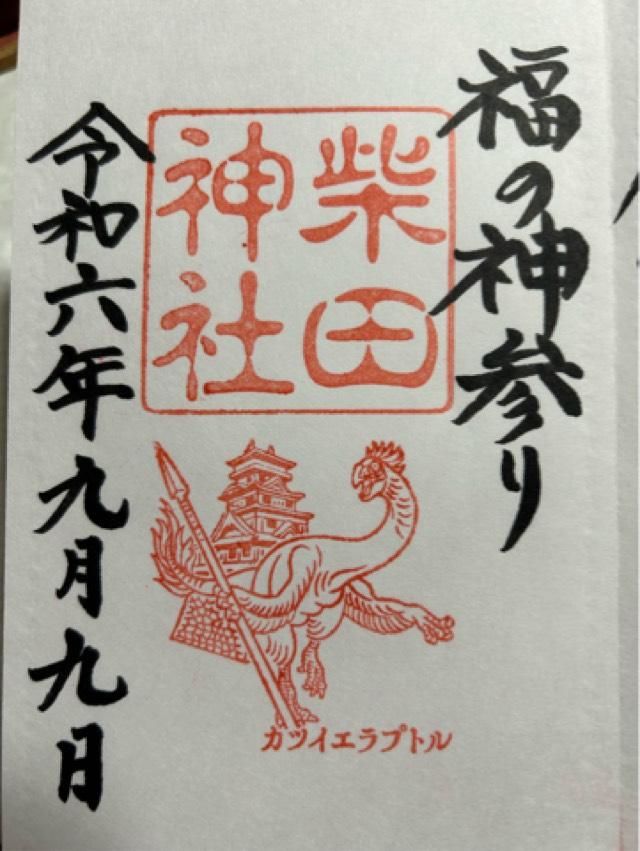 福の神参り
柴田
神社
カツイエラプトル
令和六年九月九日